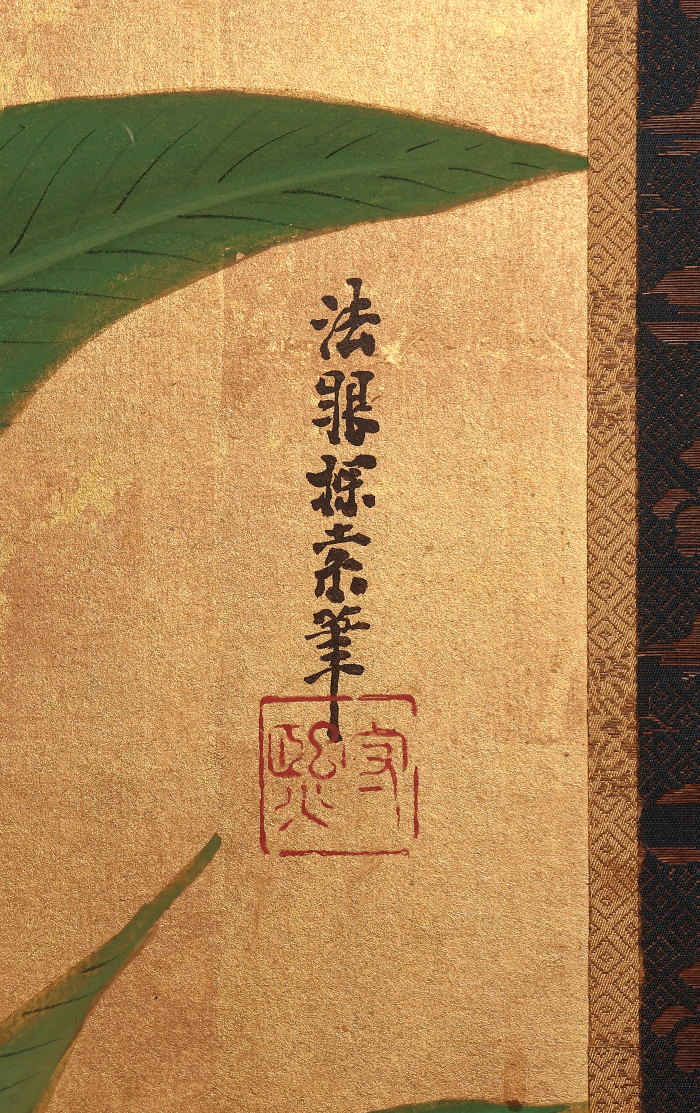 法眼探索筆
守熙